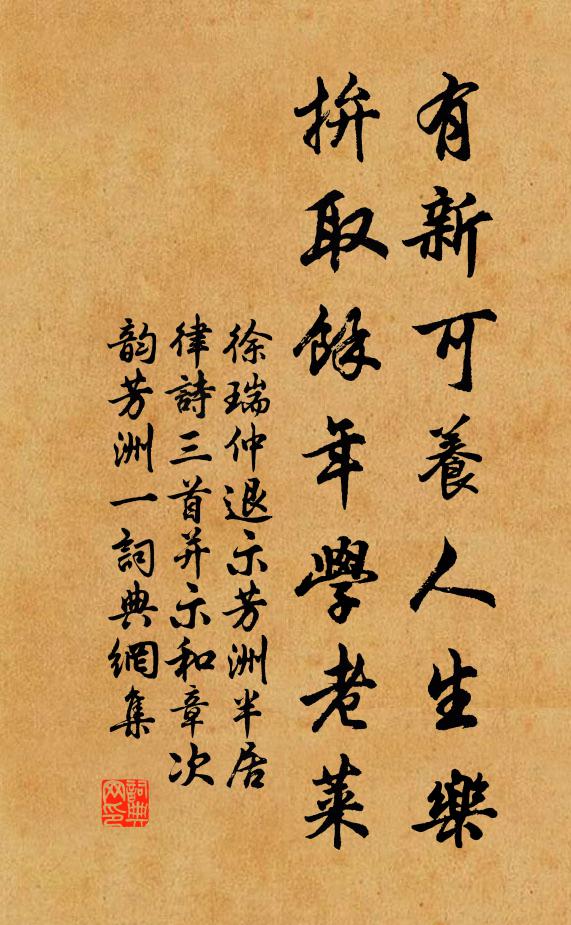 有新可養人生樂
拚取餘年學老萊
徐瑞仲退示芳洲半居
律詩三首并示和章次
韵芳洲一詞典網集
詞典网印